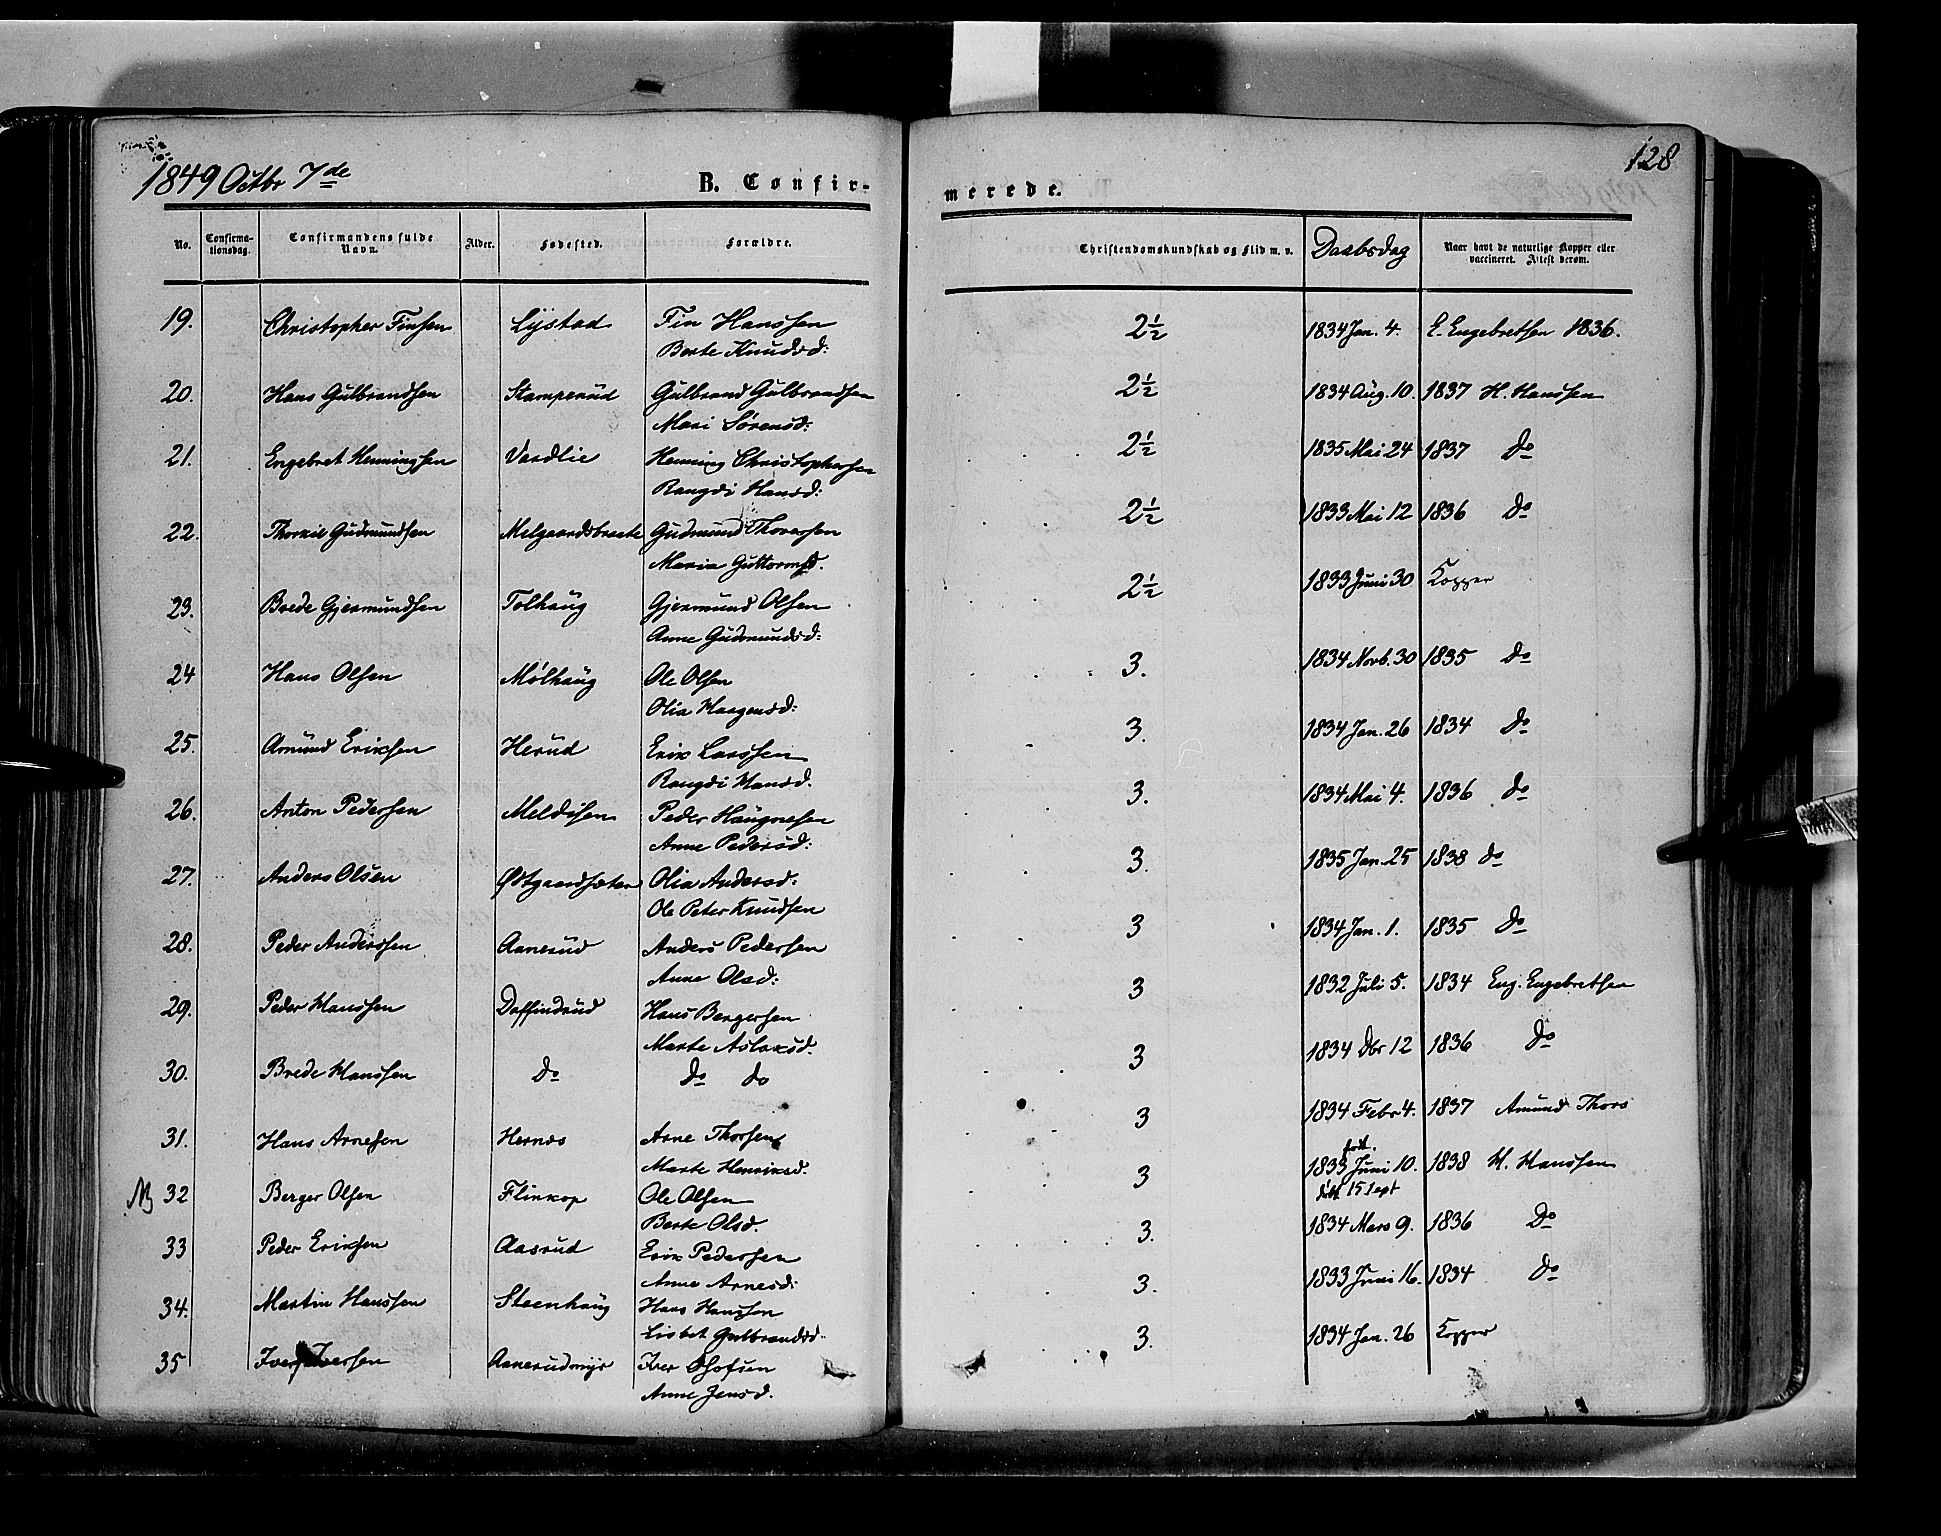 1849 Octbr 7de
B. Confir-
merede.
128
No. Confirma-tionsdag. Confirmandens fulde Navn. Alder. Fødested. Forældre. Christendomskundskab og Flid m. v. Daabsdag Naar havt de naturlige Kopper eller vaccineret. Attest derom.
19. Christopher Finsen Lystad Fin Hanssen 2½ 1834 Jan. 4. E. Engebretsen 1836.
Berte Knudsd:
20. Hans Gulbrandsen Stamperud Gulbrand Gulbrandsen 2½ 1834 Aug. 10. 1837 H. Hanssen
Mari Sørensd:
21. Engebret Henningsen Vardlie Henning Christophersen 2½ 1835 Mai 24 1837 Do
Rangdi Hansd:
22. Thorkil Gudmundsen Melgaardsbraate Gudmund Thoresen 2½ 1833 Mai 12 1836 Do
Maria Guttormsd.
23. Brede Gjermundsen Tolhaug Gjermund Olsen 2½ 1833 Juni 30 Kopper
Anne Gudmundsd:
24 Hans Olsen Mølhaug Ole Olsen 3. 1834 Novb. 30 1835 Do
Olia Haagensd:
25. Amund Eriksen Herud Erik Larssen 3. 1834 Jan. 26 1834 Do
Rangdi Hansd.
26. Anton Pedersen Meldisen Peder Haugnesen 3. 1834 Mai 4. 1836 Do
Anne Pedersd:
27. Anders Olsen Østgaardsæter Olia Andersd: 3. 1835 Jan. 25 1838 do
Ole Peter Knudsen
28. Peder Anderssen Aanerud Anders Pedersen 3 1834 Jan. 1. 1835 Do
Anne Olsd:
29. Peder Hanssen Daffindrud Hans Bergersen 3 1832 Juli 5. 1834 Eng. Engebretsen
Marte Aslaksd.
30. Brede Hanssen Do Do do 3 1834 Dbr 12 1836 Do
31. Hans Arnesen Hernes Arne Thorsen 3 1834 Febr 4. 1837 Amund Thors
Marte Henriksd.
NB 32 Berger Olsen Flinkop Ole Olsen 3 født. 1833 Juni 10. 1838 H. Hanssen
Berte Olsd. døbt 15 Sept
33 Peder Eriksen Aasrud Erik Pedersen 3. 1834 Mars 9. 1836 Do
Anne Arnesd:
34. Martin Hanssen Steenhaug Hans Hanssen 3. 1833 Juni 16. 1834 Do
Lisbet Gulbrandsd.
35 Iver Iversen Aanerudmyr Iver 3. 1834 Jan. 26 Kopper
Anne Jensd.